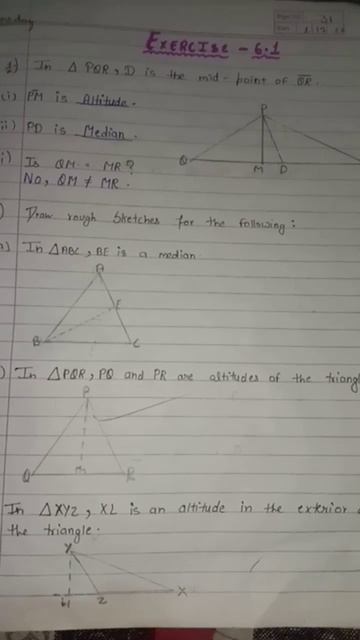 EXERCISE - 6.1
1) In Δ PQR, D is the mid-point of QR.
(i) PM is Altitude.
ii) PD is Median.
i) Is QM = MR?
No, QM ≠ MR.
P
Q
M D
) Draw rough Sketches for the following:
a) In ΔABC, BE is a median
A
E
B
C
) In ΔPQR, PQ and PR are altitudes of the triangl
P
Q
M
R
In ΔXYZ, XL is an altitude in the exterior
the triangle.
Z
X